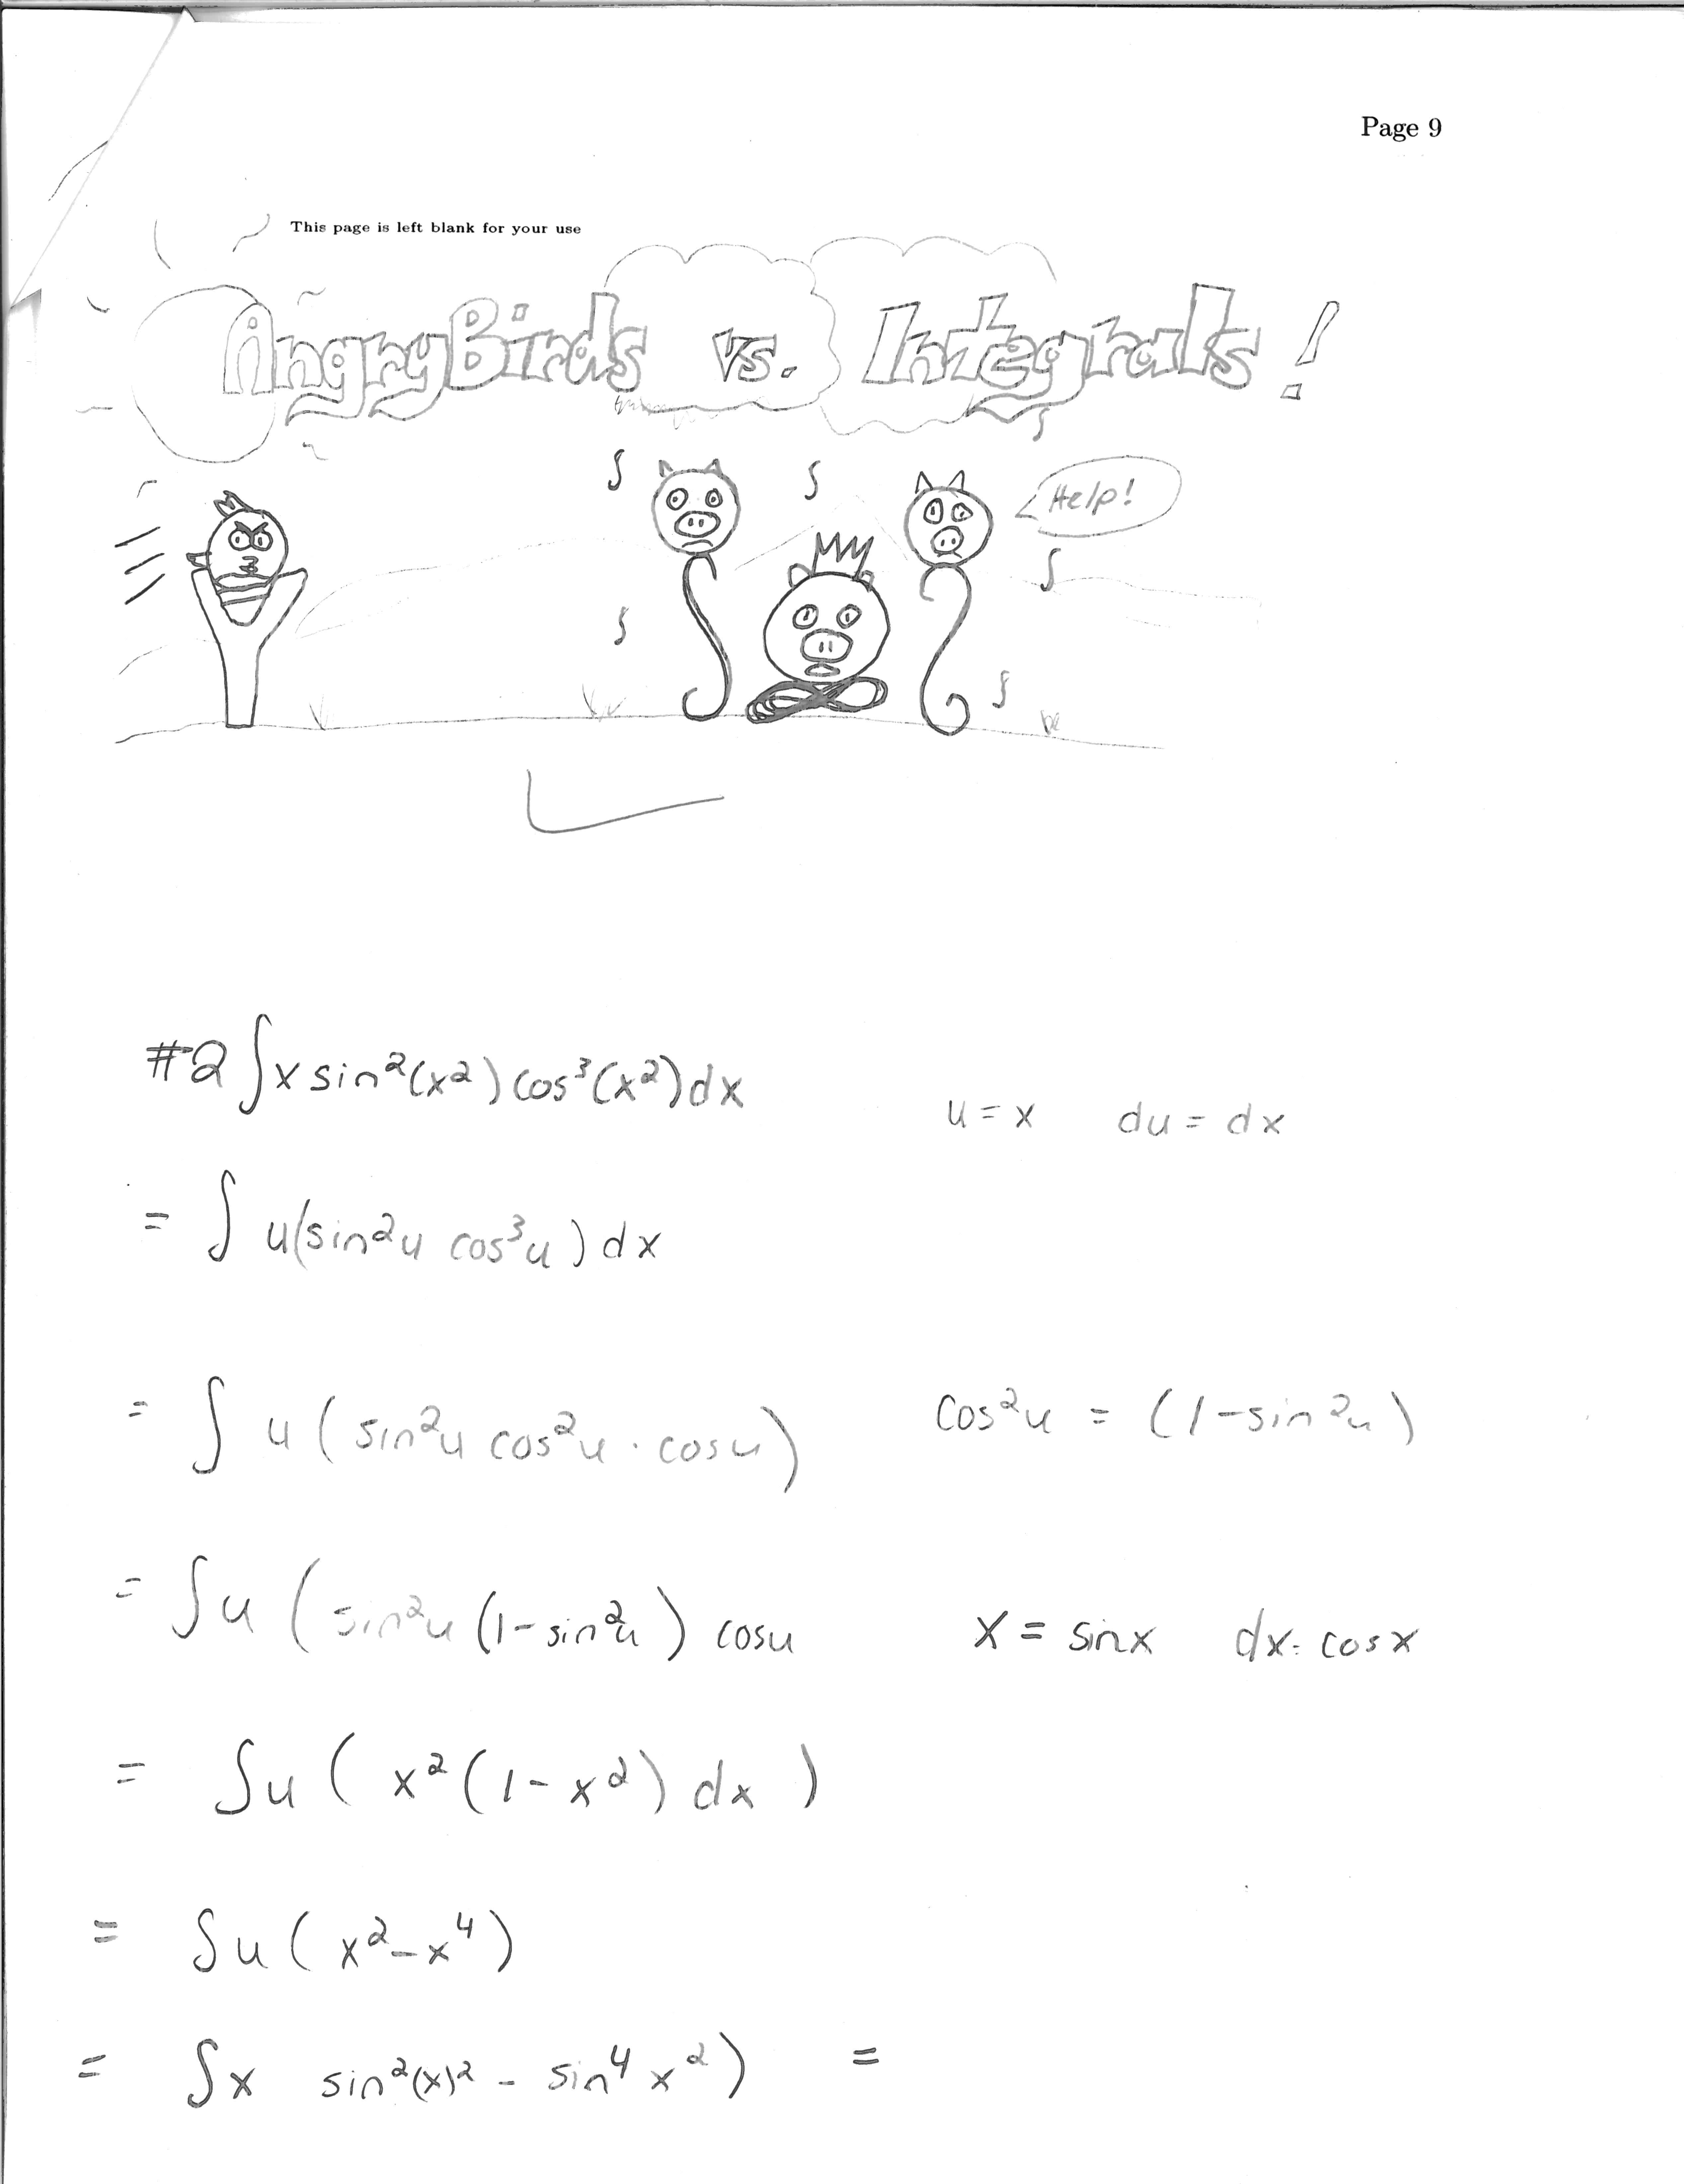 Page 9
This page is left blank for your use
AngryBirds vs. Integrals!
Help!
#2 ∫x sin²(x²) cos³(x²) dx
u = x du = dx
= ∫ u(sin²u cos³u) dx
= ∫ u (sin²u cos²u · cosu)
cos²u = (1-sin²u)
= ∫u (sin²u (1-sin²u) cosu
x = sinx dx = cosx
= ∫u ( x² (1-x²) dx )
= ∫u ( x² - x⁴ )
= ∫x sin²(x)² - sin⁴ x² ) =